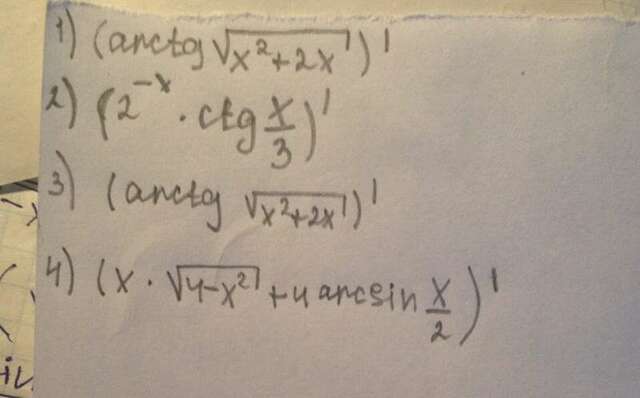 1) (arctg √(x²+2x))'
2) (2^(-x) · ctg x/3)'
3) (arctg √(x²+2x))'
4) (x · √(4-x²) + 4 arcsin x/2)'